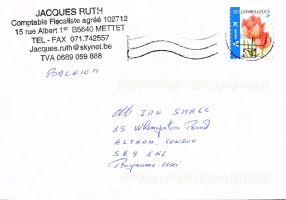 JACQUES RUTH
Comptable Fiscaliste agréé 102712
15 rue Albert 1er B5640 METTET
TEL - FAX 071.742557
Jacques.ruth@skynet.be
TVA 0669 059 888
BELGIUM
IAN SMALL
35 Road
ALTHAM, LONDON
SE9 6NL
Royaume-Uni